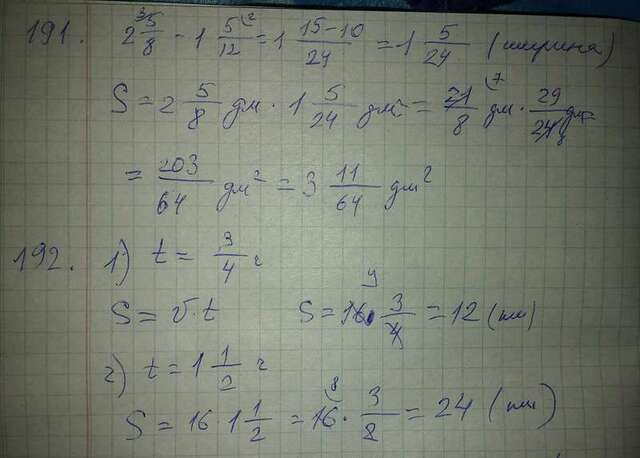 191. 2 5/8 - 1 5/12 = 1 15-10/24 = 1 5/24 (ширина)
S = 2 5/8 дм · 1 5/24 дм = 21/8 дм · 29/24 дм =
= 203/64 дм² = 3 11/64 дм²
192. 1) t = 3/4 ч
S = v·t S = 16 · 3/4 = 12 (км)
2) t = 1 1/2 ч
S = 16 · 1 1/2 = 16 · 3/8 = 24 (км)